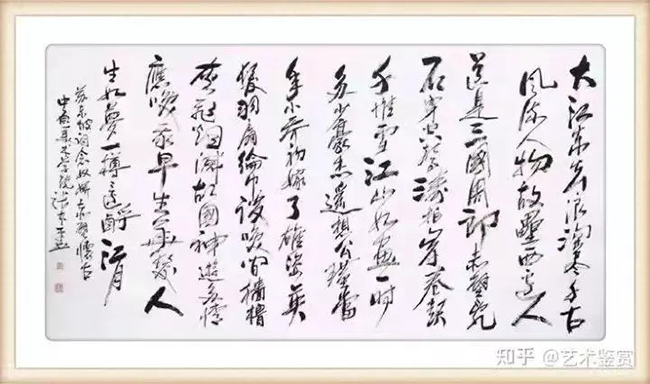 大江东去浪淘尽千古
風流人物故壘西邊人
道是三國周郎赤壁乱
石穿空驚濤拍岸卷起
千堆雪江山如畫一時
多少豪杰遥想公瑾當
年小喬初嫁了雄姿英
發羽扇綸巾談笑間檣櫓
灰飛烟滅故國神遊多情
應笑我早生華髮人
生如夢一樽還酹江月
苏东坡词念奴娇赤壁懷古
中國美术学院
知乎 @艺术鉴赏